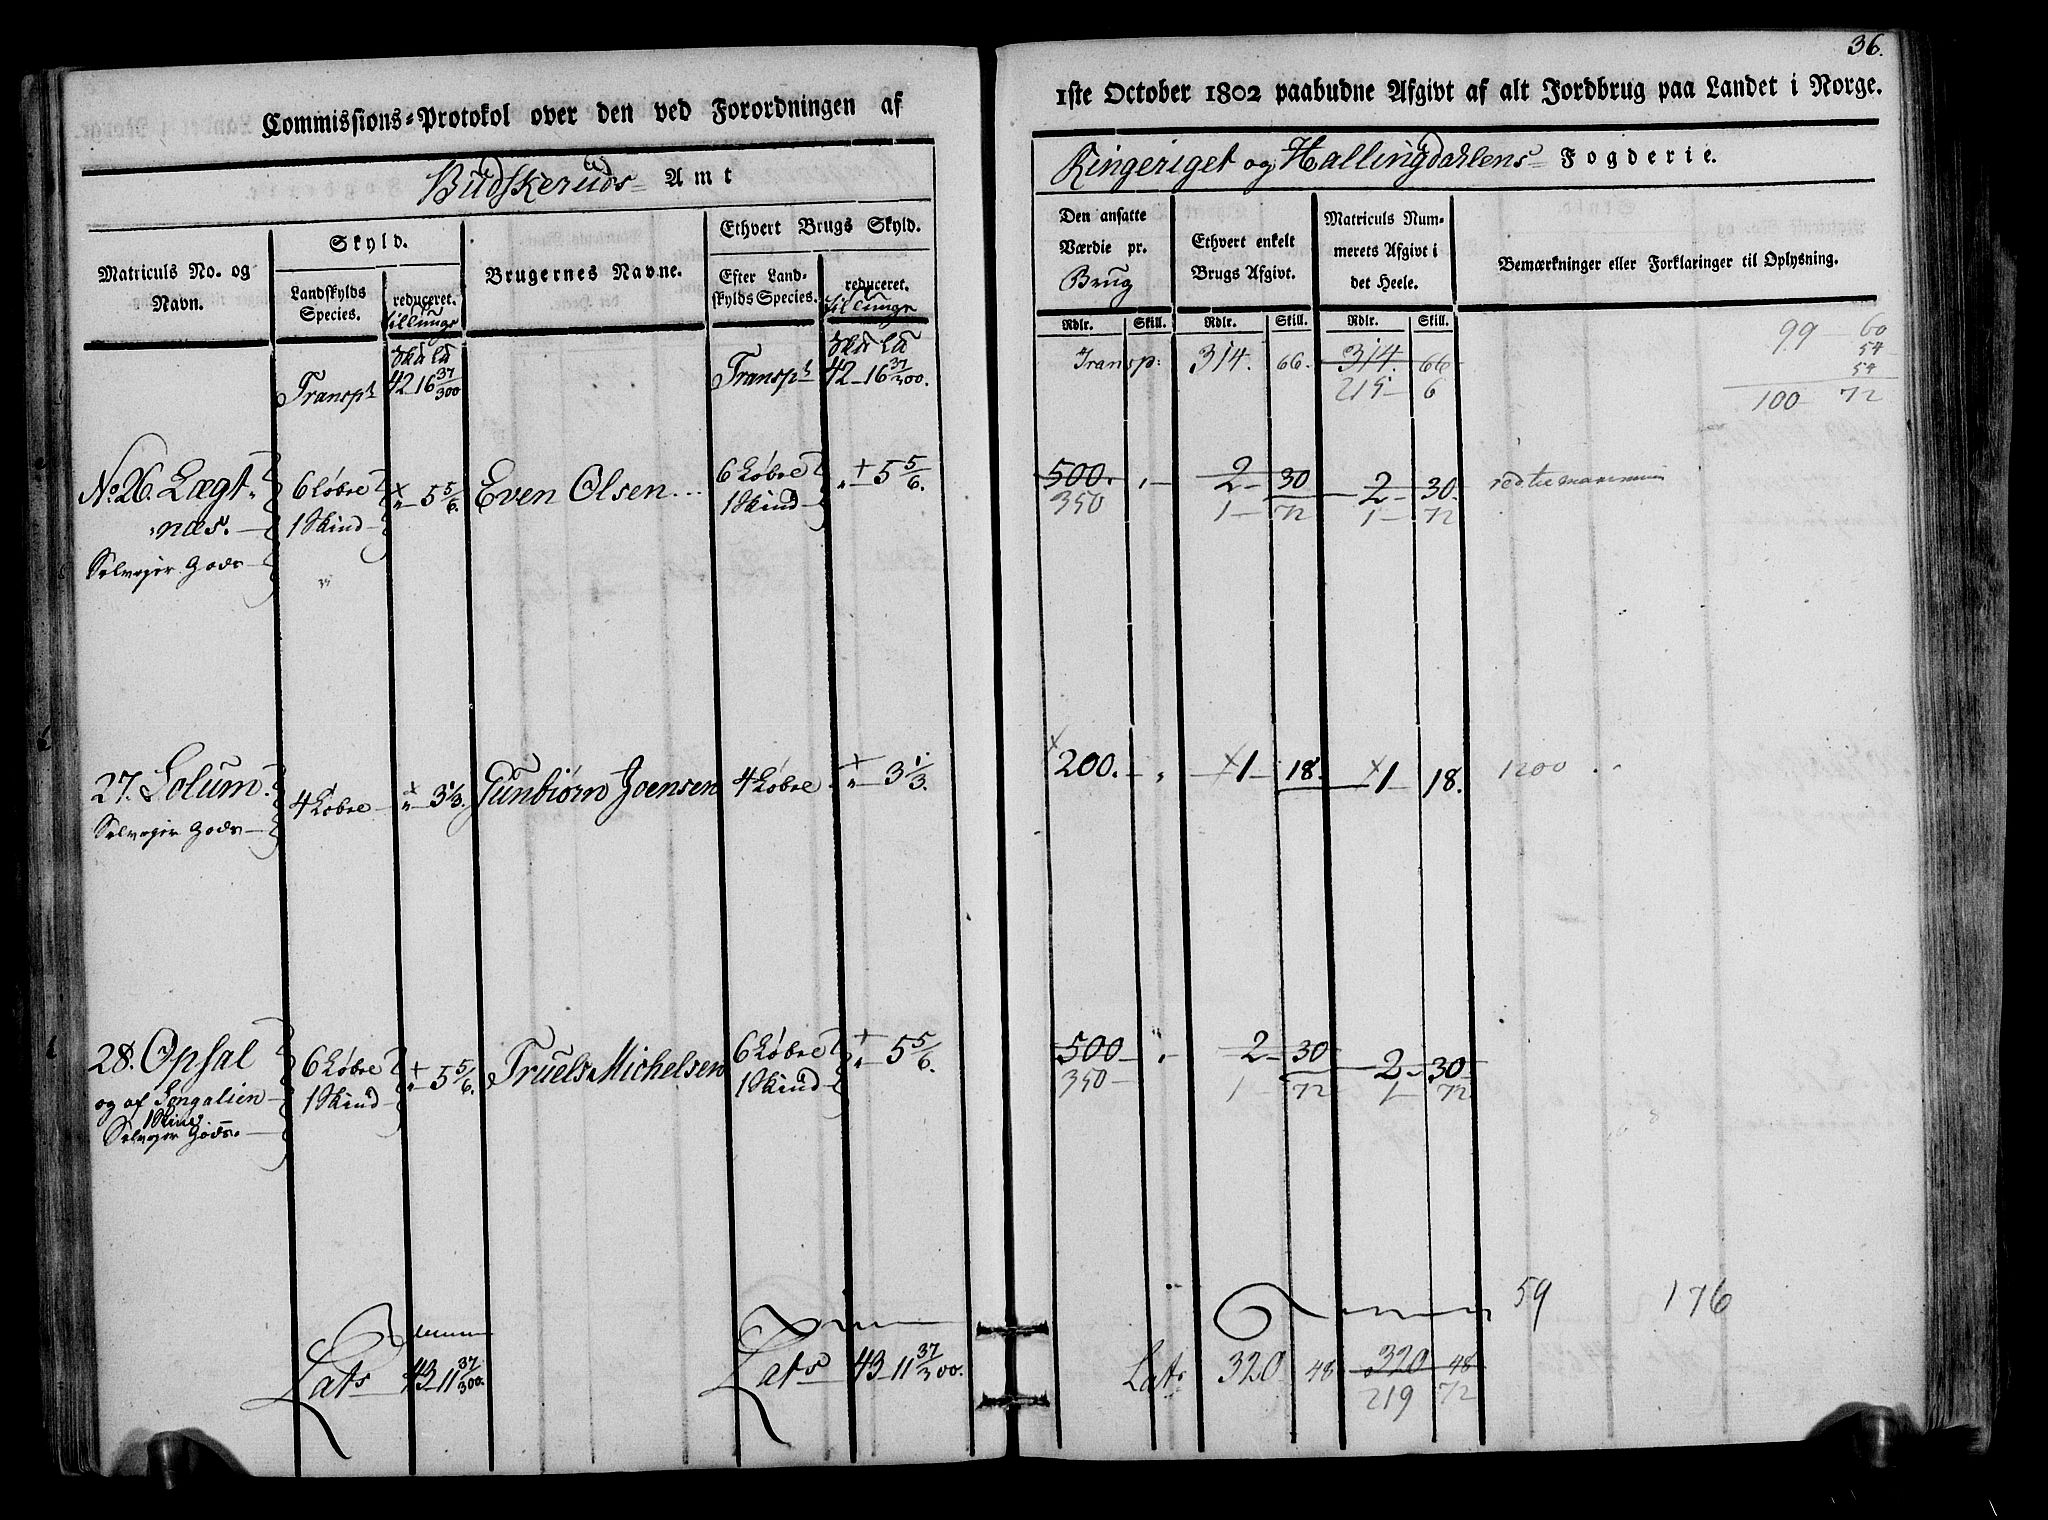 36.
Commissions-Protokol over den ved Forordningen af
1ste October 1802 paabudne Afgivt af alt Jordbrug paa Landet i Norge.
Budskeruds Amt
Ringeriget og Hallingdahlens Fogderie.
Matriculs No. og Navn.
Skyld.
Landskylds Species.
reduceret.
Brugernes Navne.
Ethvert Brugs Skyld.
Efter Landskylds Species.
reduceret.
Den ansatte Værdie pr. Brug
Ethvert enkelt Brugs Afgivt.
Matriculs Nummerets Afgivt i det Heele.
Bemærkninger eller Forklaringer til Oplysning.
Rdlr. Skill. Rdlr. Skill. Rdlr. Skill.
Transpt 42 16 37/300 Transpt 42 16 37/300. Transp: 314. 66. 314. 66
215 6
99 60
54
54
100 72
No 26. Lægt 6 Løbse 5 5/6. Even Olsen 6 Løbse 5 5/6. 500. 2 30 2 30.
næs. 1 Skind 1 Skind 350 1 72 1 72
Selveyer Gods
27. Solum 4 Løbse 3 1/3. Gunbiørn Joensen 4 Løbse 3 1/3. 200. 1 18. 1 18. 1200
Selveyer Gods
28. Opsal 6 Løbse 5 5/6. Truels Michelsen 6 Løbse 5 5/6. 500 2 30 2 30
og af 1 Skind 1 Skind 350 1 72 1 72
1 Skind
Selveyer Gods.
59 176
Lats 43 11 37/300. Lats 43 11 37/300. Lats 320 48 320 48
219 72